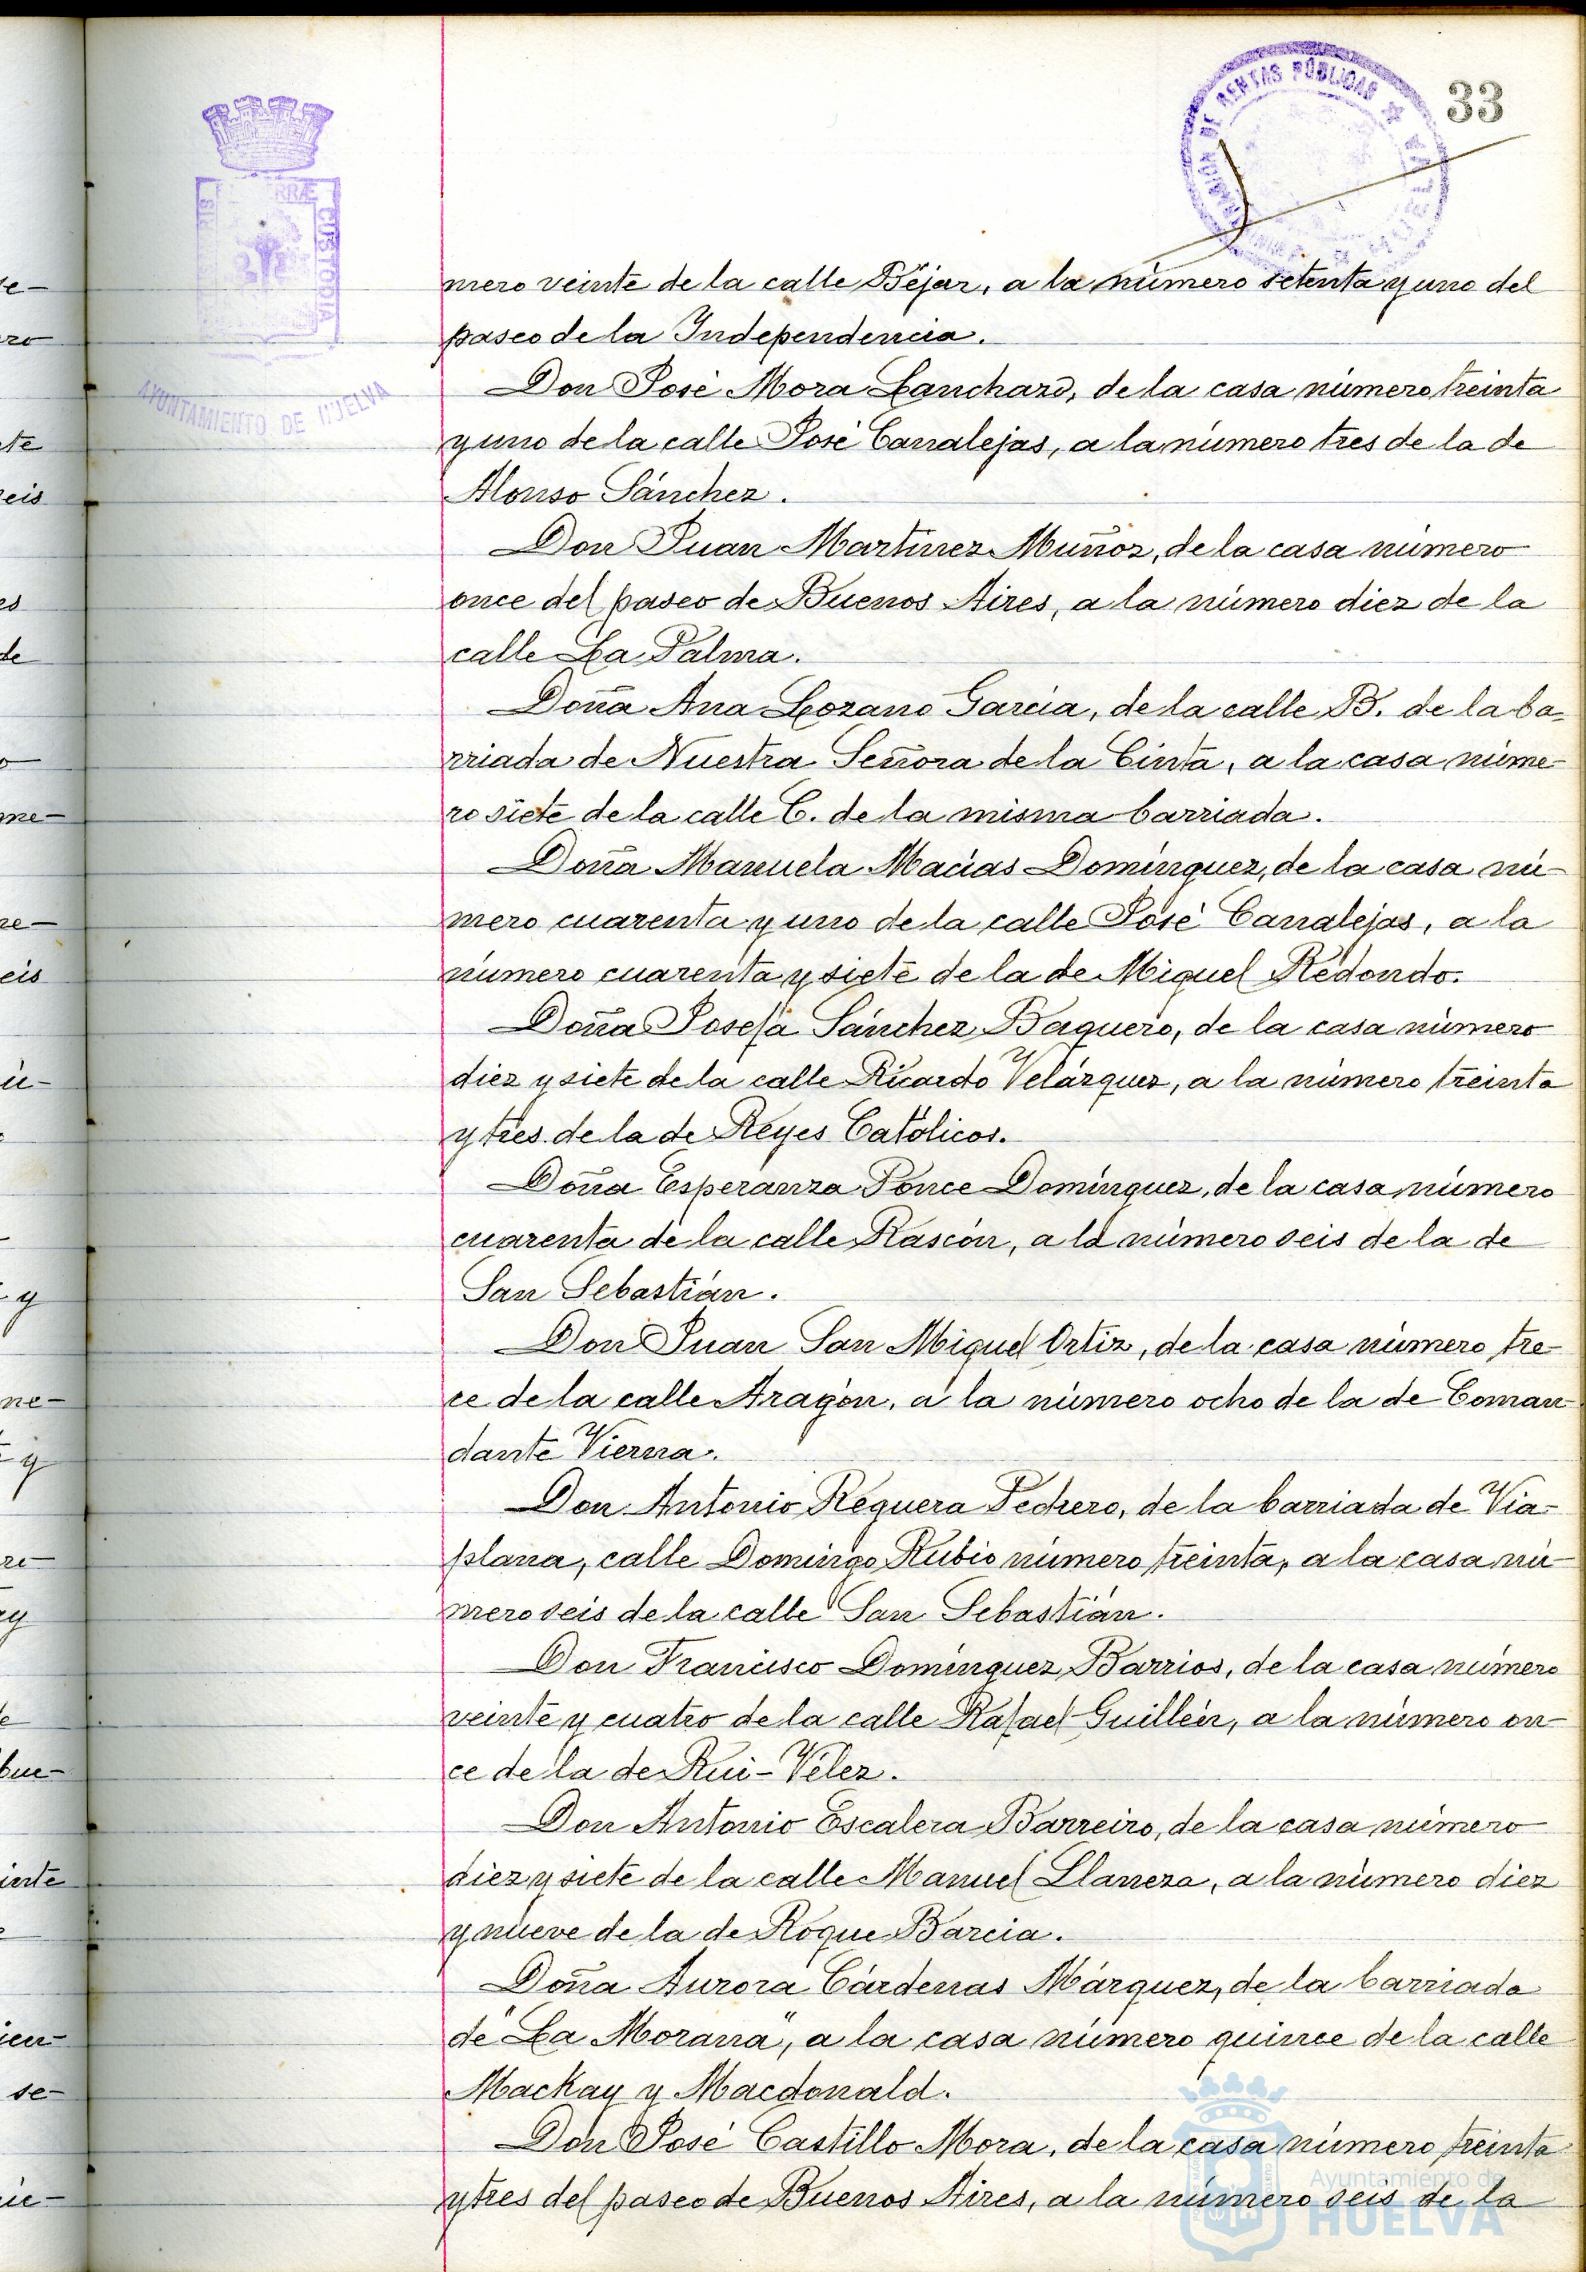 33
RENTAS PÚBLICAS
CUSTODIA
AYUNTAMIENTO DE HUELVA
mero veinte de la calle Béjar, a la número setenta y uno del
paseo de la Independencia.
Don José Mora Lanchazo, de la casa número treinta
y uno de la calle José Canalejas, a la número tres de la de
Alonso Sánchez.
Don Juan Martínez Muñoz, de la casa número
once del paseo de Buenos Aires, a la número diez de la
calle La Palma.
Doña Ana Lozano García, de la calle B. de la ba=
rriada de Nuestra Señora de la Cinta, a la casa núme-
ro siete de la calle C. de la misma barriada.
Doña Manuela Macías Domínguez, de la casa nú-
mero cuarenta y uno de la calle José Canalejas, a la
número cuarenta y siete de la de Miguel Redondo.
Doña Josefa Sánchez Baquero, de la casa número
diez y siete de la calle Ricardo Velázquez, a la número treinta
y tres de la de Reyes Católicos.
Doña Esperanza Ponce Domínguez, de la casa número
cuarenta de la calle Rascón, a la número seis de la de
San Sebastián.
Don Juan San Miguel Ortiz, de la casa número tre-
ce de la calle Aragón, a la número ocho de la de Coman-
dante Vierna.
Don Antonio Reguera Pedrero, de la barriada de Via-
plana, calle Domingo Rubio número treinta, a la casa nú-
mero seis de la calle San Sebastián.
Don Francisco Domínguez Barrios, de la casa número
veinte y cuatro de la calle Rafael Guillén, a la número on-
ce de la de Rui-Vélez.
Don Antonio Escalera Barreiro, de la casa número
diez y siete de la calle Manuel Llaneza, a la número diez
y nueve de la de Roque Barcia.
Doña Aurora Cárdenas Márquez, de la barriada
de "La Morana", a la casa número quince de la calle
Mackay y Macdonald.
Don José Castillo Mora, de la casa número treinta
y tres del paseo de Buenos Aires, a la número seis de la
Ayuntamiento de
HUELVA